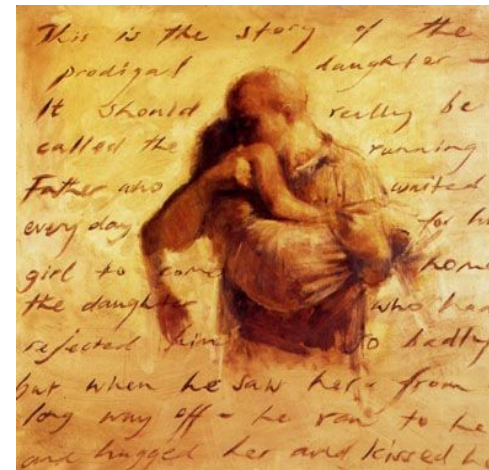 This is the story of the
prodigal daughter -
It should really be
called the running
Father who waited
every day for h
girl to come home
the daughter who had
rejected him so badly
but when he saw her - from
long way off - he ran to he
and hugged her and kissed h